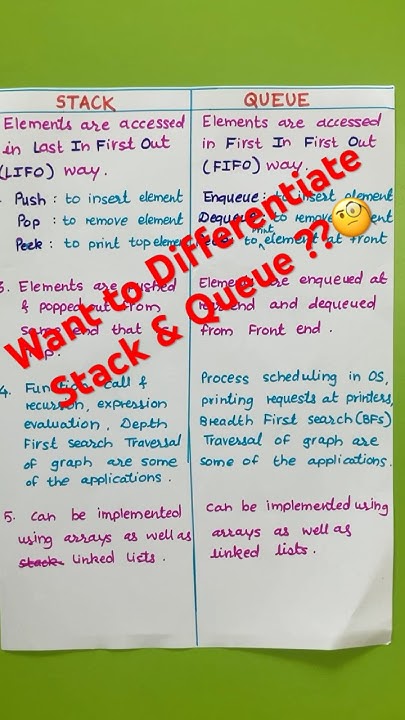 STACK
Elements are accessed
in Last In First Out
(LIFO) way.
Push : to insert element
Pop : to remove element
Peek : to print top element
3. Elements are pushed
& popped out from
same end that
4. Function call &
recursion, expression
evaluation, Depth
First search Traversal
of graph are some
of the applications.
5. can be implemented
using arrays as well as
stack linked lists.
QUEUE
Elements are accessed
in First In First Out
(FIFO) way.
Enqueue : to insert element
Dequeue : to remove element
to print element at front
Elements are enqueued at
end and dequeued
from Front end.
Process scheduling in OS,
printing requests at printers,
Breadth First search (BFS)
Traversal of graph are
some of the applications.
can be implemented using
arrays as well as
linked lists.
Want to Differentiate
Stack & Queue ??🧐